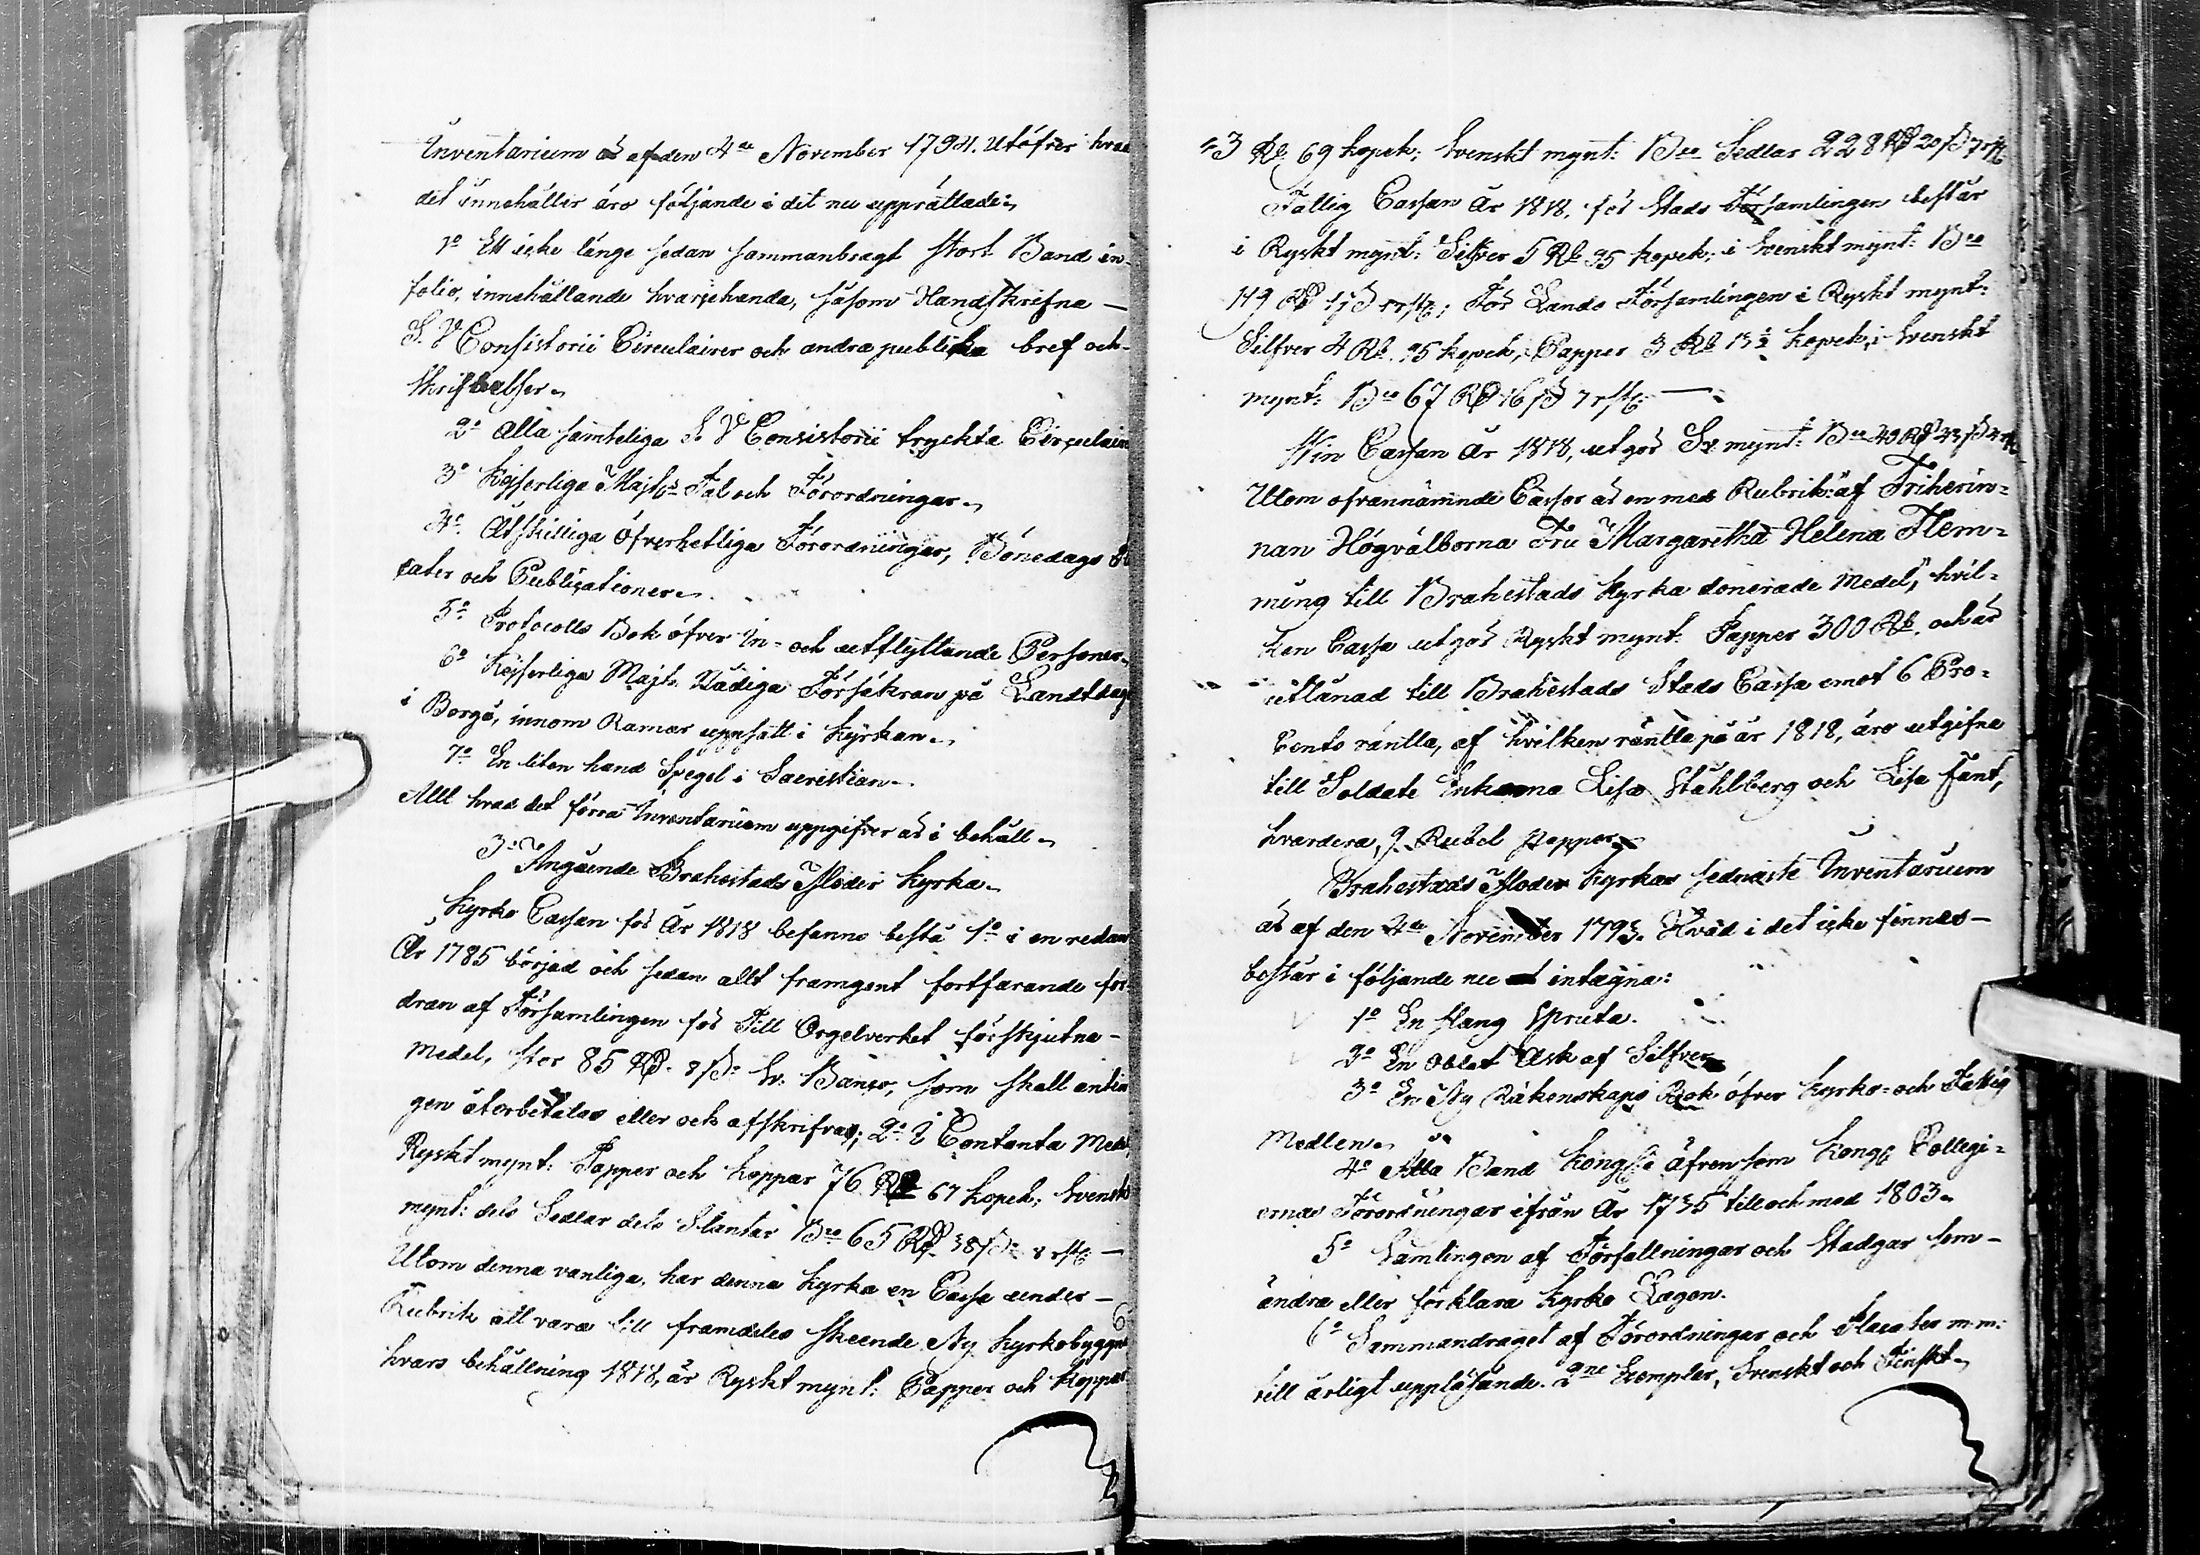 Inventarium är af den 4de November 1794. Utöfver hvad
det innehåller äro följande i det nu upprättade:
1o Ett icke länge sedan sammanbragt stort Band in
folio, innehållande hvarjehanda, såsom Handskrifna
S. V Consistorii Circulairer och andra publika bref och
Skrifvelser.
2o Alla samteliga S. V Consistorii tryckta Circulairer
3o Kejserliga Majts Tal och Förordningar.
4o Åtskilliga Öfverhetliga Förordningar, Bönedags
cater och Publicationer.
5o Protocolls Bok öfver In- och utflyttande Personer.
6o Kejserliga Majts Nådiga Försäkran på Landtdag
i Borgå, innom Ramar uppsatt i Kyrkan.
7o En liten hand Spegel i Sacristian.
Allt hvad det förra Inventarium uppgifver är i behåll.
3o Angående Brahestads Moder Kyrka.
Kyrko Cassan för År 1818 befanns bestå 1o i en redan
År 1785 börjad och sedan allt framgent fortfarande for
dran af Församlingen för Till Orgelverket förskjutna
Medel, stor 85 RD. 8 β: Sv. Banco, som skall antin
gen återbetalas eller och afskrifvas; 2o I Contanta Medel
Ryskt mynt: Papper och Koppar 76 Rb 67 Kopek; Svenskt
mynt: dels Sedlar dels Slantar Bco 65 RD 38 β 8 rst
Utom denna vanliga, har denna Kyrka en Cassa under
Rubrik att vara till framdeles skeende Ny Kyrkobyggn
hvars behållning 1818, är Ryskt mynt: Papper och Koppar
3 Rb 69 kopek; Svenskt mynt: Bco Sedlar 228 RD 20 β 7 rst
Fattig Cassan År 1818, för Stads Församlingen består
i Ryskt mynt: Silfver 5 Rb 95 kopek; i Svenskt mynt: Bco
119 RD 17 β rst; För Lands Församlingen i Ryskt mynt:
Silfver 4 Rb. 95 kopek, Papper 3 Rb 13½ kopek, i Svenskt
mynt: Bco 67 RD 16 β 7 rst
Win Cassan År 1818, utgör Sv mynt: Bco
Utom ofvannämnde Cassor är en med Rubrik: "af Friherin=
nan Högvälborna Fru Margaretha Helena Flem=
ming till Brahestads Kyrka donerade Medel," hvil=
ken Cassa utgör Ryskt mynt: Papper 300 Rb. och är
utlånad till Brahestads Stads Cassa emot 6 Pro=
Cento räntta, af hvilken räntta på år 1818, äro utgifne
till Soldate Enkorna Lisa Ståhlberg och Lisa Fant,
hvardera, 9 Rubel papper.
Brahestads Moder Kyrkas sednaste Inventarium
är af den 4de November 1793. Hvad i det icke finnes
består i följande nu intagna:
1o En slang Spruta.
2o En Oblat Ask af Silfver
3o En Ny Räkenskaps Bok öfver Kyrko= och Fattig
Medlen.
4o Åtta Band Kongl:a äfvensom Kongl Collegi=
ernas Förordningar ifrån År 1735 till och med 1803.
5o Samlingen af Författningar och Stadgar som
ändra eller förklara Kyrko Lagen.
6o Sammandraget af Förordningar och Placater m.m:
till årligt uppläsande. 2ne Exemplar, Svenskt och Finskt.